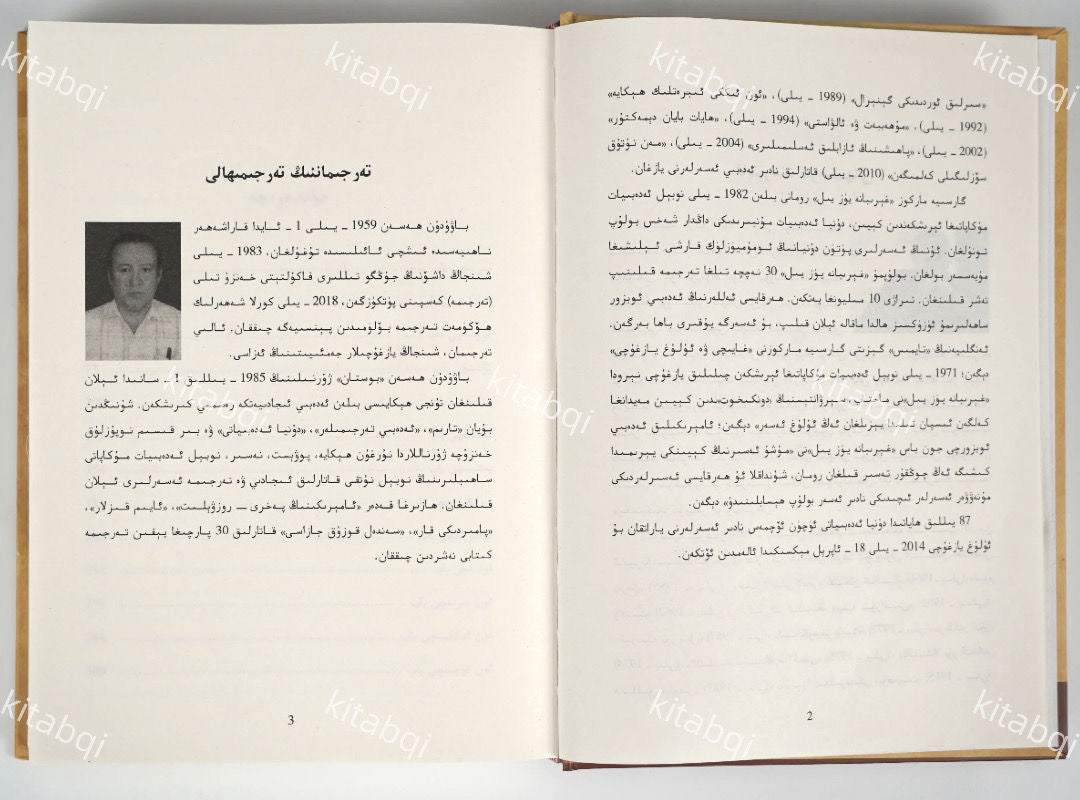 «سىرلىق ئوردىدىكى گېنېرال» (1989 ـ يىلى)، «ئون ئىككى ئىبرەتلىك ھېكايە»
(1992 ـ يىلى)، «مۇھەببەت ۋە ئالۋاستى» (1994 ـ يىلى)، «ھايات بايان دېمەكتۇر»
(2002 ـ يىلى)، «پاھىشىنىڭ ئازابلىق ئەسلىمىلىرى» (2004 ـ يىلى)، «مەن نۇتۇق
سۆزلىگىلى كەلمىگەن» (2010 ـ يىلى) قاتارلىق نادىر ئەدەبىي ئەسەرلەرنى يازغان.
گارسىيە ماركوز «غېرىبانە يۈز يىل» رومانى بىلەن 1982 ـ يىلى نوبېل ئەدەبىيات
مۇكاپاتىغا ئېرىشكەندىن كېيىن، دۇنيا ئەدەبىيات مۇنبىرىدىكى داڭدار شەخس بولۇپ
تونۇلغان. ئۇنىڭ ئەسەرلىرى پۈتۈن دۇنيانىڭ ئومۇميۈزلۈك قارشى ئېلىشىغا
مۇيەسسەر بولغان. بولۇپمۇ «غېرىبانە يۈز يىل» 30 نەچچە تىلغا تەرجىمە قىلىنىپ
نەشر قىلىنغان. تىراژى 10 مىليونغا يەتكەن. ھەرقايسى ئەللەرنىڭ ئەدەبىي ئوبزور
ساھەلىرىمۇ ئۈزۈكسىز ھالدا ماقالە ئېلان قىلىپ، بۇ ئەسەرگە يۇقىرى باھا بەرگەن.
ئەنگلىيەنىڭ «تايمىس» گېزىتى گارسىيە ماركوزنى «غايىچى ۋە ئۇلۇغ يازغۇچى»
دېگەن؛ 1971 ـ يىلى نوبېل ئەدەبىيات مۇكاپاتىغا ئېرىشكەن چىلىلىق يازغۇچى نېرودا
«غېرىبانە يۈز يىل»نى ماختاپ «سېرۋانتېسنىڭ «دونكىخوت»ىدىن كېيىن مەيدانغا
كەلگەن ئىسپان تىلىدا يېزىلغان ئەڭ ئۇلۇغ ئەسەر» دېگەن؛ ئامېرىكىلىق ئەدەبىي
ئوبزورچى جون باس «غېرىبانە يۈز يىل»نى «مۇشۇ ئەسىرنىڭ كېيىنكى يېرىمىدا
كىشىگە ئەڭ چوڭقۇر تەسىر قىلغان رومان، شۇنداقلا ئۇ ھەرقايسى ئەسىرلەردىكى
مۇنەۋۋەر ئەسەرلەر ئىچىدىكى نادىر ئەسەر بولۇپ ھېسابلىنىدۇ» دېگەن.
87 يىللىق ھاياتىدا دۇنيا ئەدەبىياتى ئۈچۈن ئۆچمەس نادىر ئەسەرلەرنى ياراتقان بۇ
ئۇلۇغ يازغۇچى 2014 ـ يىلى 18 ـ ئاپرېل مېكسىكىدا ئالەمدىن ئۆتكەن.
2
تەرجىماننىڭ تەرجىمىھالى
باۋۇدۇن ھەسەن 1959 ـ يىلى 1 ـ ئايدا قاراشەھەر
ناھىيەسىدە ئىشچى ئائىلىسىدە تۇغۇلغان. 1983 ـ يىلى
شىنجاڭ داشۆنىڭ جۇڭگو تىللىرى فاكۇلتېتى خەنزۇ تىلى
(تەرجىمە) كەسپىنى پۈتكۈزگەن، 2018 ـ يىلى كورلا شەھەرلىك
ھۆكۈمەت تەرجىمە بۆلۈمىدىن پېنسىيەگە چىققان. ئالىي
تەرجىمان، شىنجاڭ يازغۇچىلار جەمئىيىتىنىڭ ئەزاسى.
باۋۇدۇن ھەسەن «بوستان» ژۇرنىلىنىڭ 1985 ـ يىللىق 1 ـ سانىدا ئېلان
قىلىنغان تۇنجى ھېكايىسى بىلەن ئەدەبىي ئىجادىيەتكە رەسمىي كىرىشكەن. شۇنىڭدىن
بۇيان «تارىم»، «ئەدەبىي تەرجىمىلەر»، «دۇنيا ئەدەبىياتى» ۋە بىر قىسىم نوپۇزلۇق
خەنزۇچە ژۇرناللاردا نۇرغۇن ھېكايە، پوۋېست، نەسىر، نوبېل ئەدەبىيات مۇكاپاتى
ساھىبلىرىنىڭ نوبېل نۇتقى قاتارلىق ئىجادىي ۋە تەرجىمە ئەسەرلىرى ئېلان
قىلىنغان. ھازىرغا قەدەر «ئامېرىكىنىڭ پەخرى — روزۋېلىت»، «ئايىم قىزلار»،
«پامىردىكى قار»، «سەندەل قوزۇق جازاسى» قاتارلىق 30 پارچىغا يېقىن تەرجىمە
كىتابى نەشردىن چىققان.
3
kitabqi
kitabqi
kitabqi
kitabqi
kitabqi
kitabqi
kitabqi
kitabqi
kitabqi
kitabqi
kitabqi